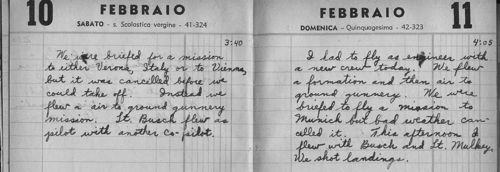 10 FEBBRAIO
SABATO - s. Scolastica vergine - 41-324
3:40
We were briefed for a mission
to either Verona, Italy or to Vienna,
but it was cancelled before we
could take off. Instead we
flew a air to ground gunnery
mission. Lt. Busch flew as
pilot with another co-pilot.
FEBBRAIO 11
DOMENICA - Quinquagesima - 42-323
4:05
I had to fly as engineer with
a new crew today. We flew
a formation and then air to
ground gunnery. We were
briefed to fly a mission to
Munich but bad weather can-
celled it. This afternoon I
flew with Busch and Lt. Mulkey.
We shot landings.